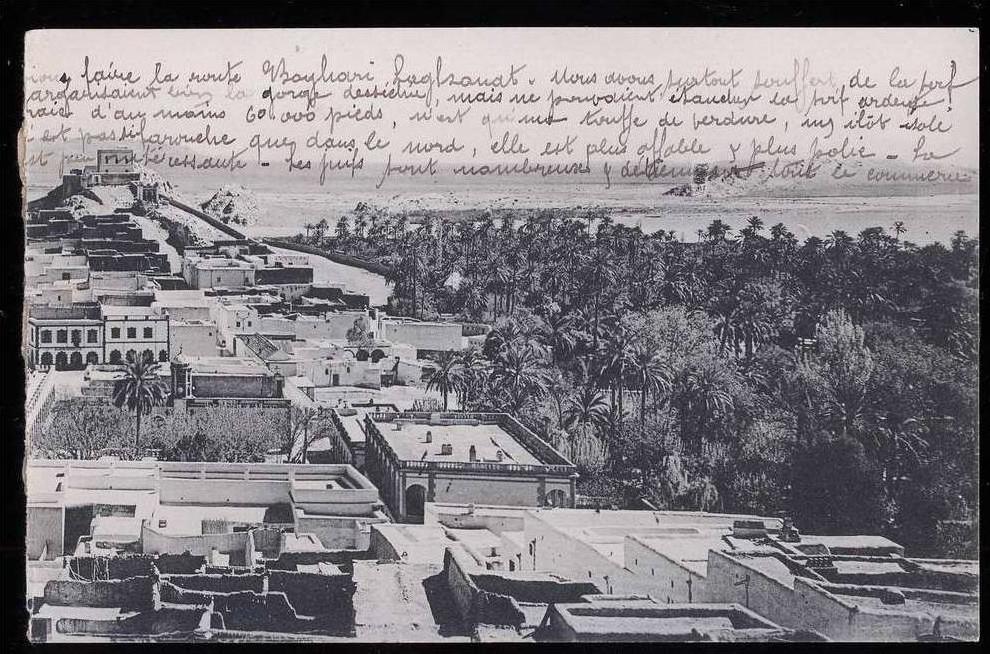 faire la route Boghari Laghouat. Nous avons surtout souffert de la soif
la gorge desséchée, mais ne pouvaient étancher la soif ardente!
d'au moins 60.000 pieds, n'est qu'une touffe de verdure, un ilôt isolé
est pas si farouche que dans le nord, elle est plus affable & plus polie - La
intéressante - Les juifs sont nombreux & détiennent tout le commerce